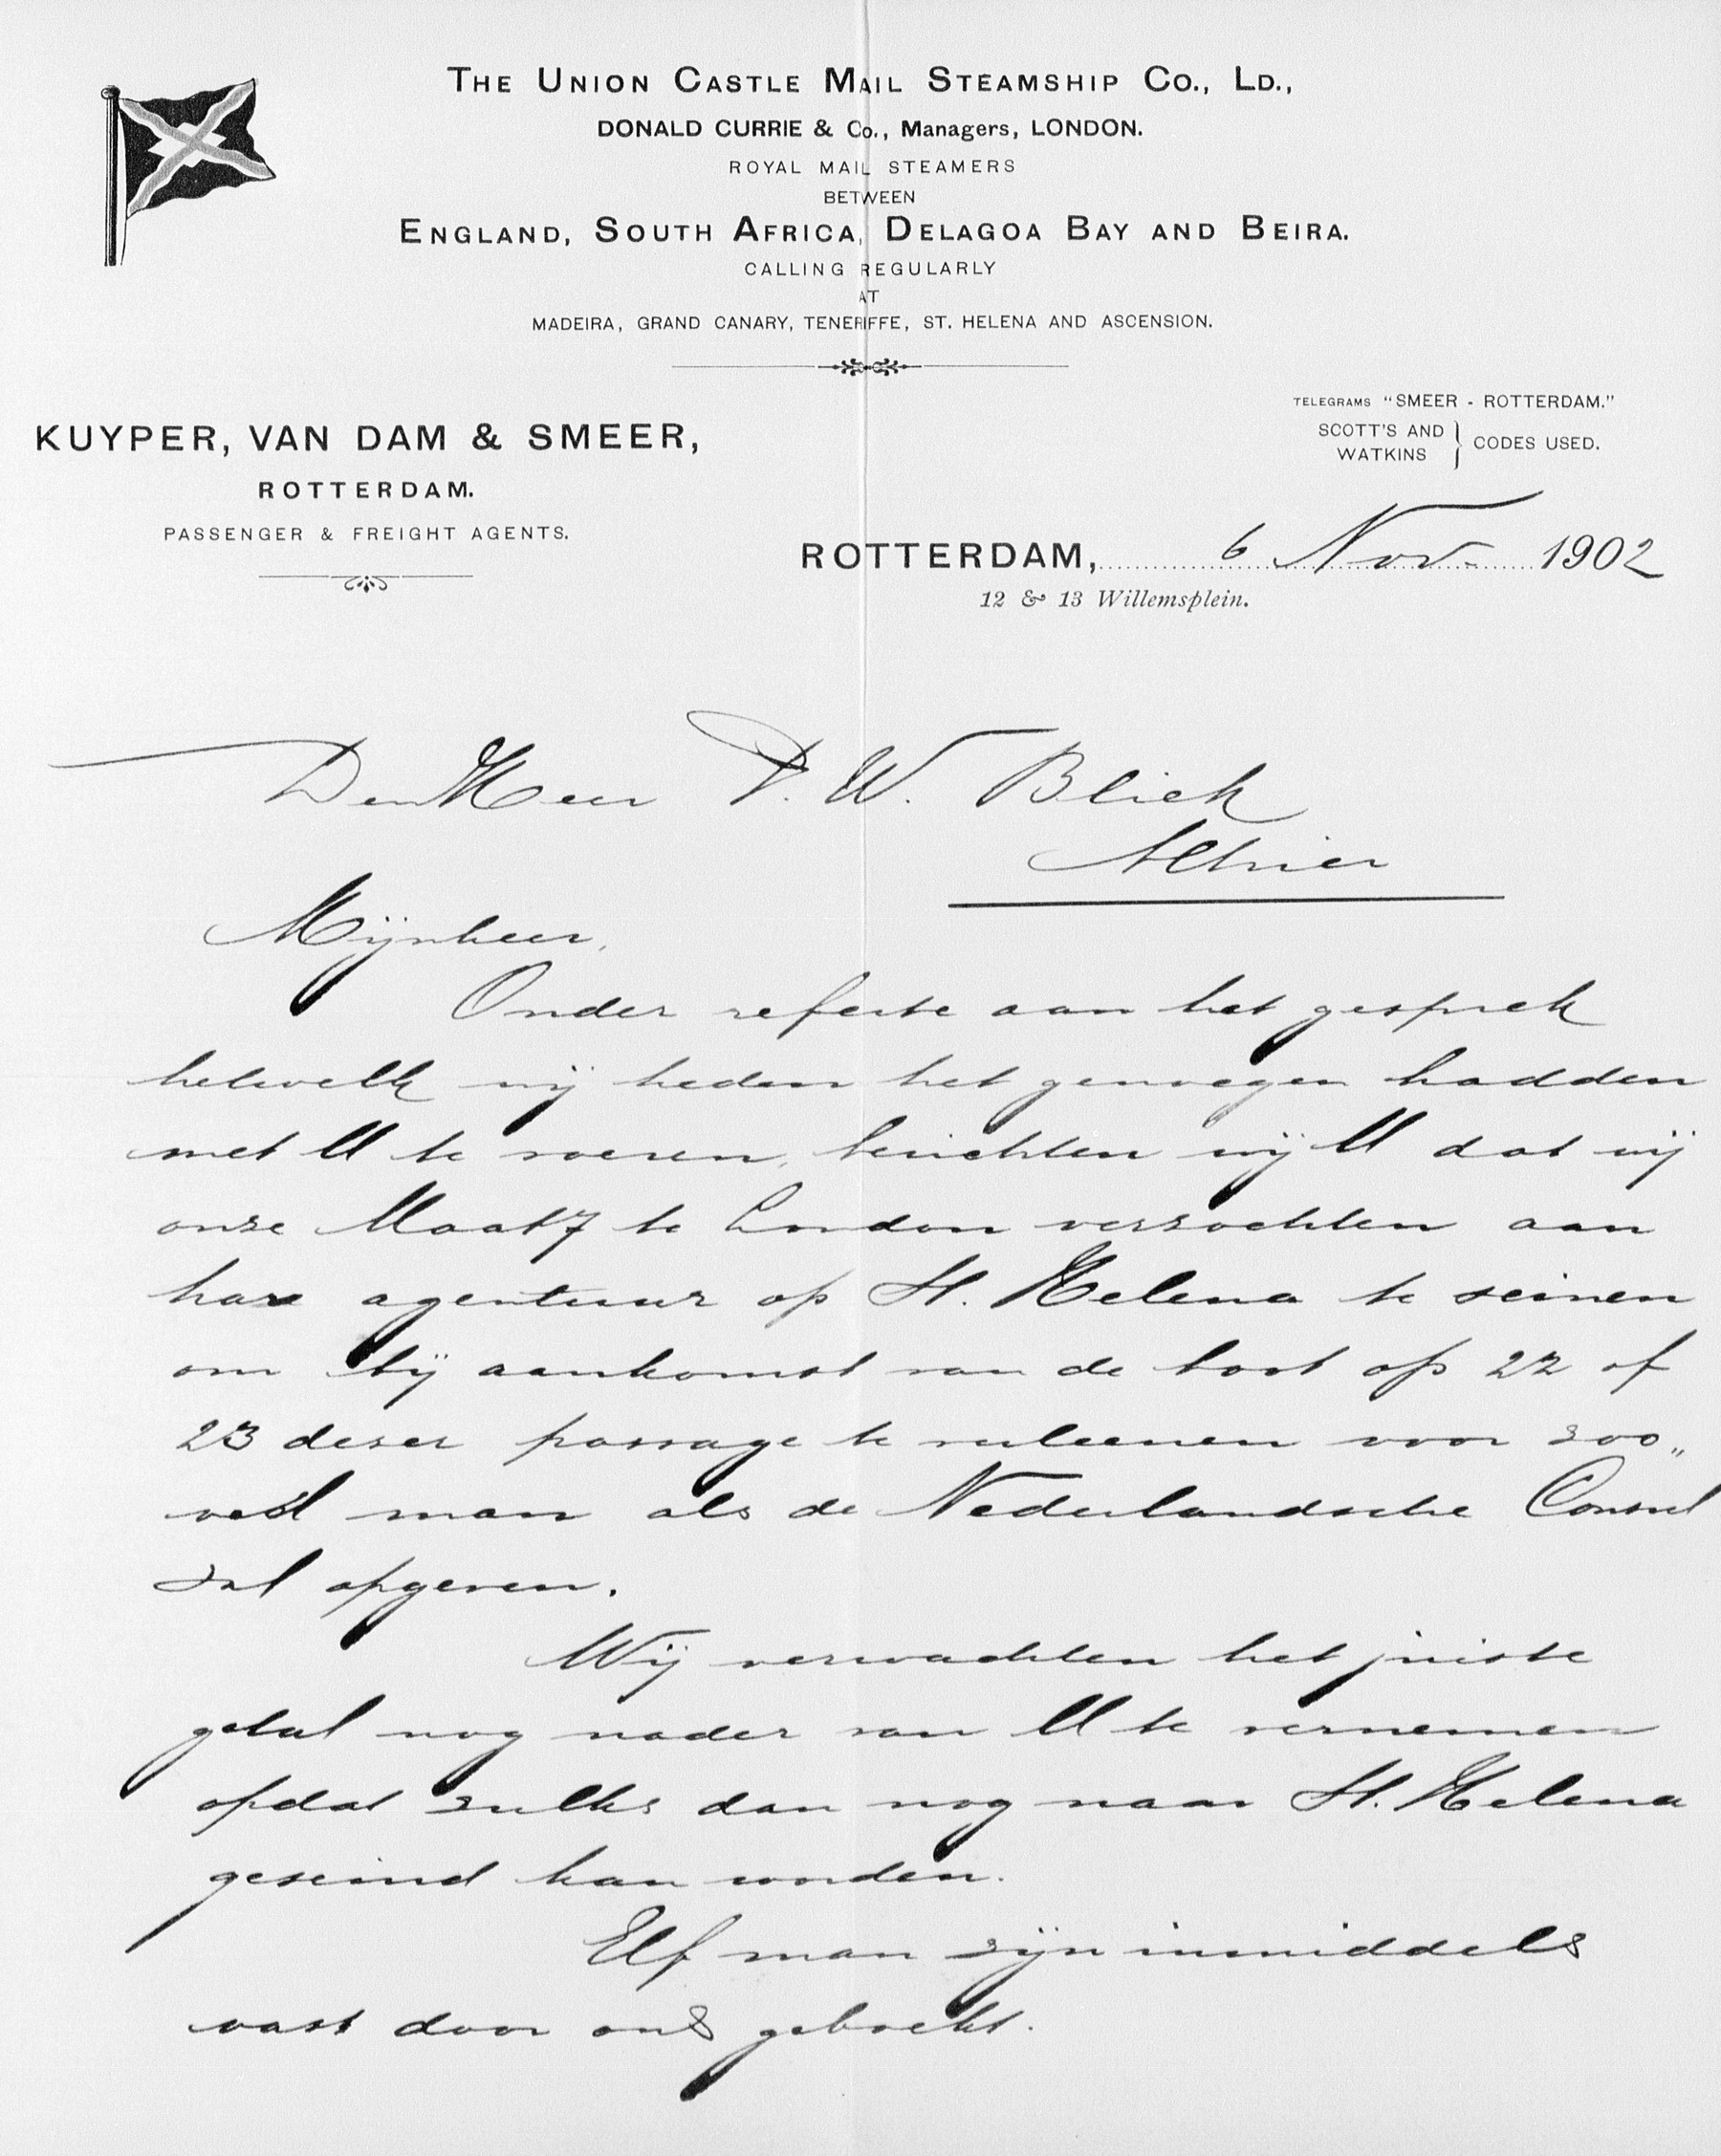 THE UNION CASTLE MAIL STEAMSHIP CO., LD.,
DONALD CURRIE & Co., Managers, LONDON.
ROYAL MAIL STEAMERS
BETWEEN
ENGLAND, SOUTH AFRICA, DELAGOA BAY AND BEIRA.
CALLING REGULARLY
AT
MADEIRA, GRAND CANARY, TENERIFFE, ST. HELENA AND ASCENSION.
TELEGRAMS "SMEER - ROTTERDAM."
SCOTT'S AND
WATKINS } CODES USED.
KUYPER, VAN DAM & SMEER,
ROTTERDAM.
PASSENGER & FREIGHT AGENTS.
ROTTERDAM, 6 Nov. 1902
12 & 13 Willemsplein.
Den Heer P. W. Bliek
Alhier
Mijnheer,
Onder referte aan het gesprek
hetwelk wij heden het genoegen hadden
met U te voeren, berichten wij U dat wij
onze Maatij te London verzochten aan
hare agentuur op St. Helena te seinen
om bij aankomst van de boot op 22 of
23 dezer passage te verleenen voor zoo„
veel man als de Nederlandsche Consul
zal opgeven.
Wij verwachten het juiste
getal nog nader van U te vernemen
opdat zulks dan nog naar St. Helena
geseind kan worden.
Elf man zijn inmiddels
vast door ons geboekt.